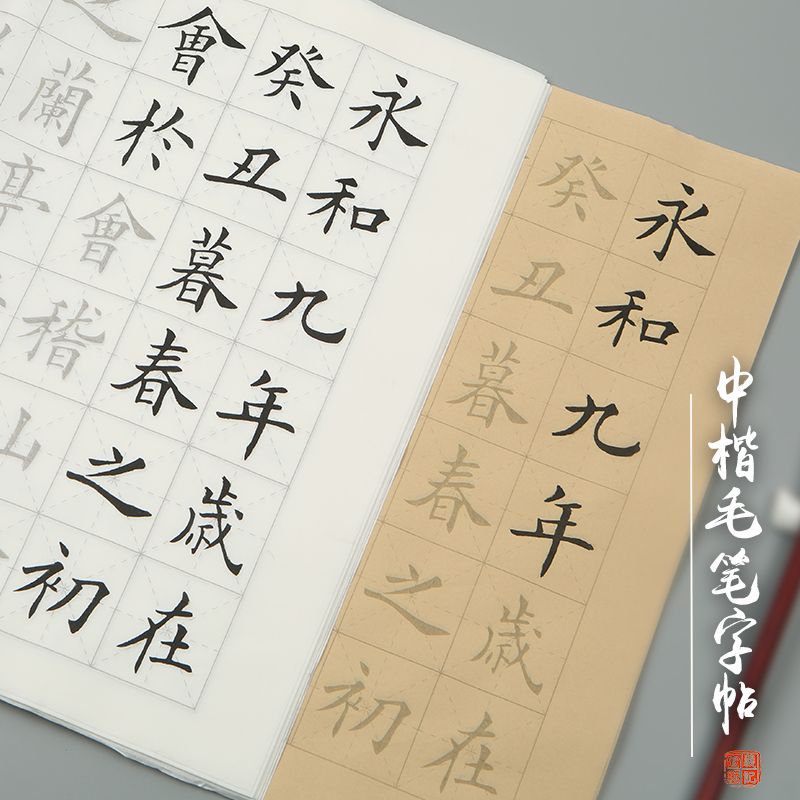 永和九年歲在
癸丑暮春之初
會於會稽山
之蘭亭
永和九年歲在
癸丑暮春之初
中楷毛笔字帖